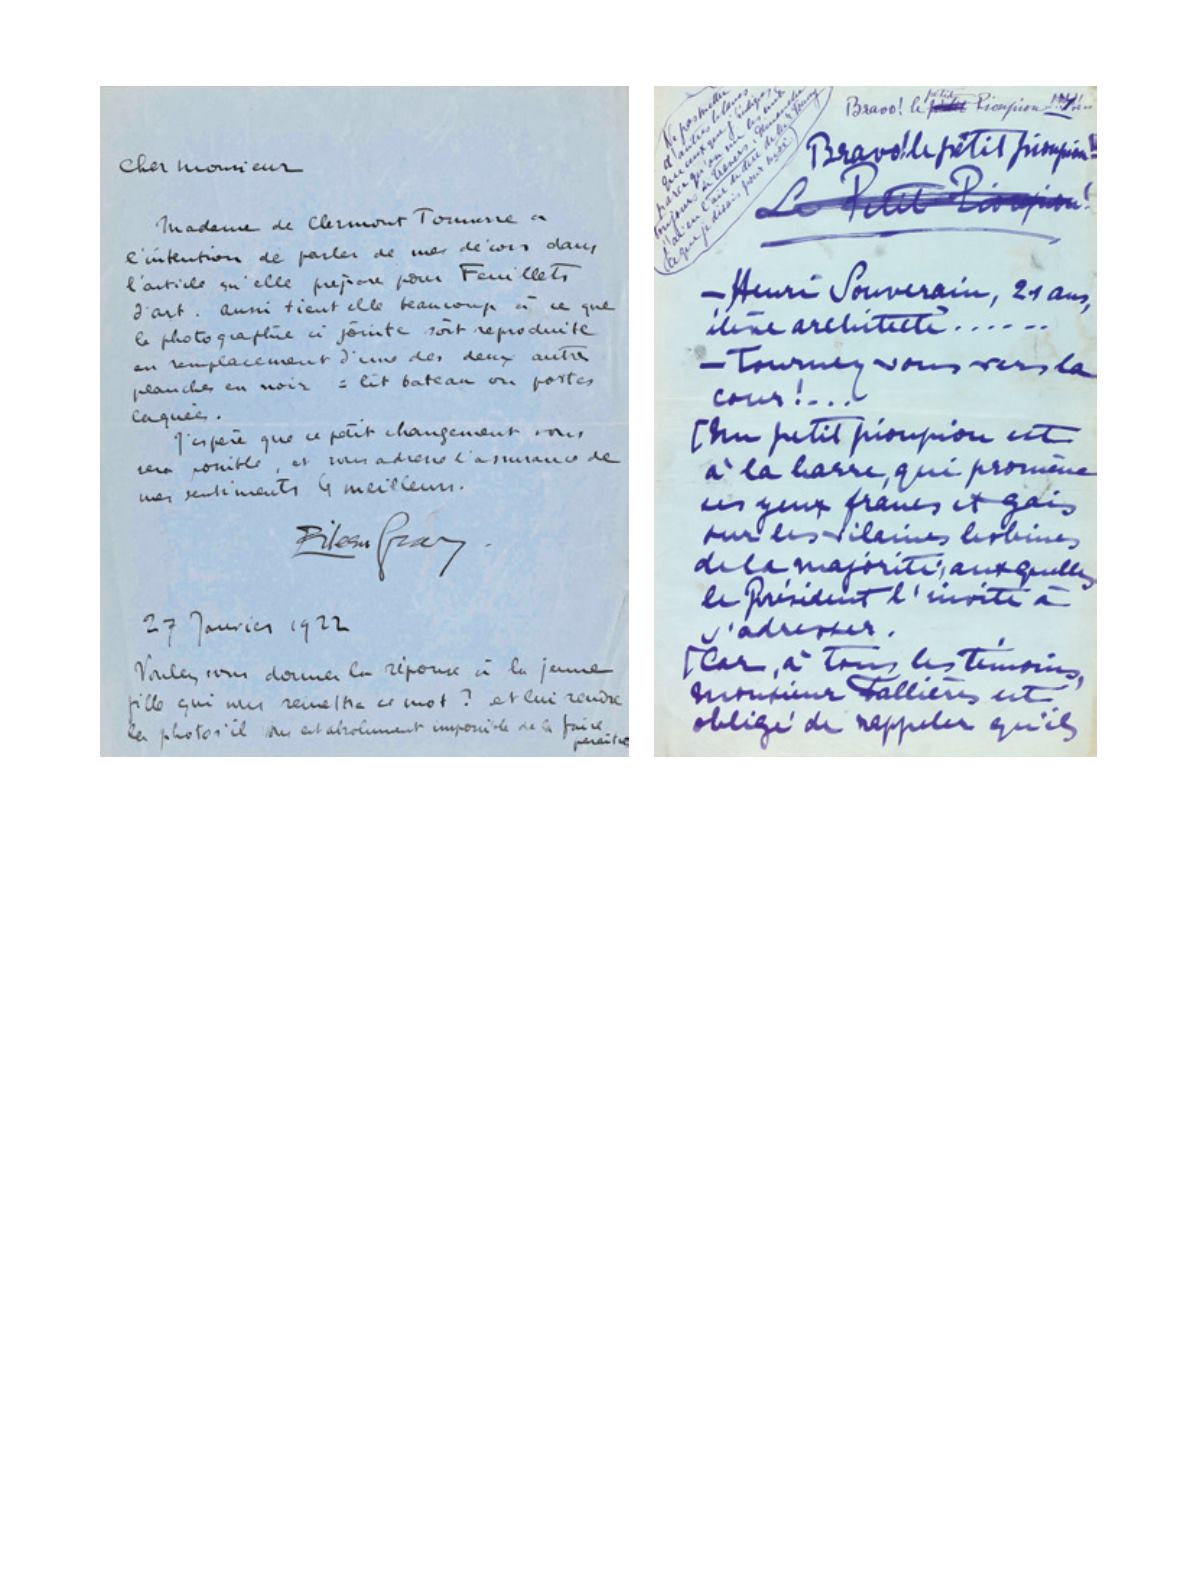 Cher Monsieur
Madame de Clermont Tonnerre a
l'intention de parler de mes décors dans
l'article qu'elle prépare pour Feuillets
d'art. aussi tient elle beaucoup à ce que
la photographie ci jointe soit reproduite
en remplacement d'une des deux autres
planches en noir = lit bateau ou portes
laquées.
J'espère que ce petit changement vous
sera possible, et vous adresse l'assurance de
mes sentiments les meilleurs.
Eileen Gray.
27 Janvier 1922
Voulez vous donner la réponse à la jeune
fille qui vous remettra ce mot? et lui rendre
la photo s'il vous est absolument impossible de la faire
paraître
Ne pas mettre
d'autres blancs
que ceux que j'indique
parce qu'on me les met
toujours de travers; dimanche
j'ai eu l'air de dire
ce que je disais pour
Bravo! le petit Pioupion
Bravo! le petit pioupion!
Le Petit Pioupion!
– Henri Souverain, 21 ans,
élève architecte......
– Tournez vous vers la
cour!...
[Un petit pioupion est
à la barre, qui promène
ses yeux francs et gais
sur les vilaines bobines
de la majorité, auxquelles
le Président l'invite à
s'adresser.
[Car, à tous les témoins,
monsieur Fallières est
obligé de rappeler qu'ils